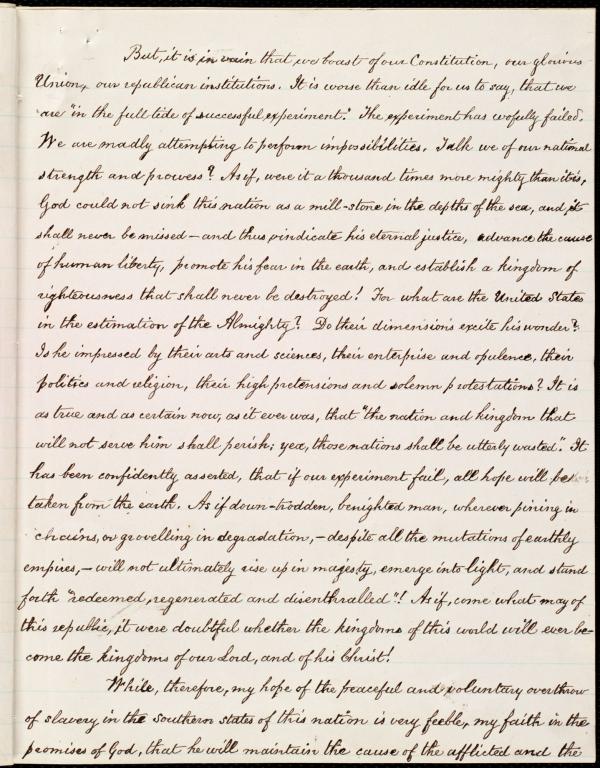 But, it is in vain that, we boast of our Constitution, our glorious
Union, our republican institutions. It is worse than idle for us to say, that we
are "in the full tide of successful experiment." The experiment has wofully failed.
We are madly attempting to perform impossibilities. Talk we of our national
strength and prowess? As if, were it a thousand times more mighty than it is,
God could not sink this nation as a mill-stone in the depths of the sea, and it
shall never be missed – and thus vindicate his eternal justice, advance the cause
of human liberty, promote his fear in the earth, and establish a kingdom of
righteousness that shall never be destroyed! For what are the United States
in the estimation of the Almighty? Do their dimensions excite his wonder?
Is he impressed by their arts and sciences, their enterprise and opulence, their
politics and religion, their high pretensions and solemn protestations? It is
as true and as certain now, as it ever was, that "the nation and kingdom that
will not serve him shall perish; yea, those nations shall be utterly wasted". It
has been confidently asserted, that if our experiment fail, all hope will be
taken from the earth. As if down-trodden, benighted man, wherever pining in
chains, or grovelling in degradation, – despite all the mutations of earthly
empires, – will not ultimately rise up in majesty, emerge into light, and stand
forth "redeemed, regenerated and disenthralled"! As if, come what may of
this republic, it were doubtful whether the kingdoms of this world will ever be-
come the kingdoms of our Lord, and of his Christ!
While, therefore, my hope of the peaceful and voluntary overthrow
of slavery in the southern states of this nation is very feeble, my faith in the
promises of God, that he will maintain the cause of the afflicted and the